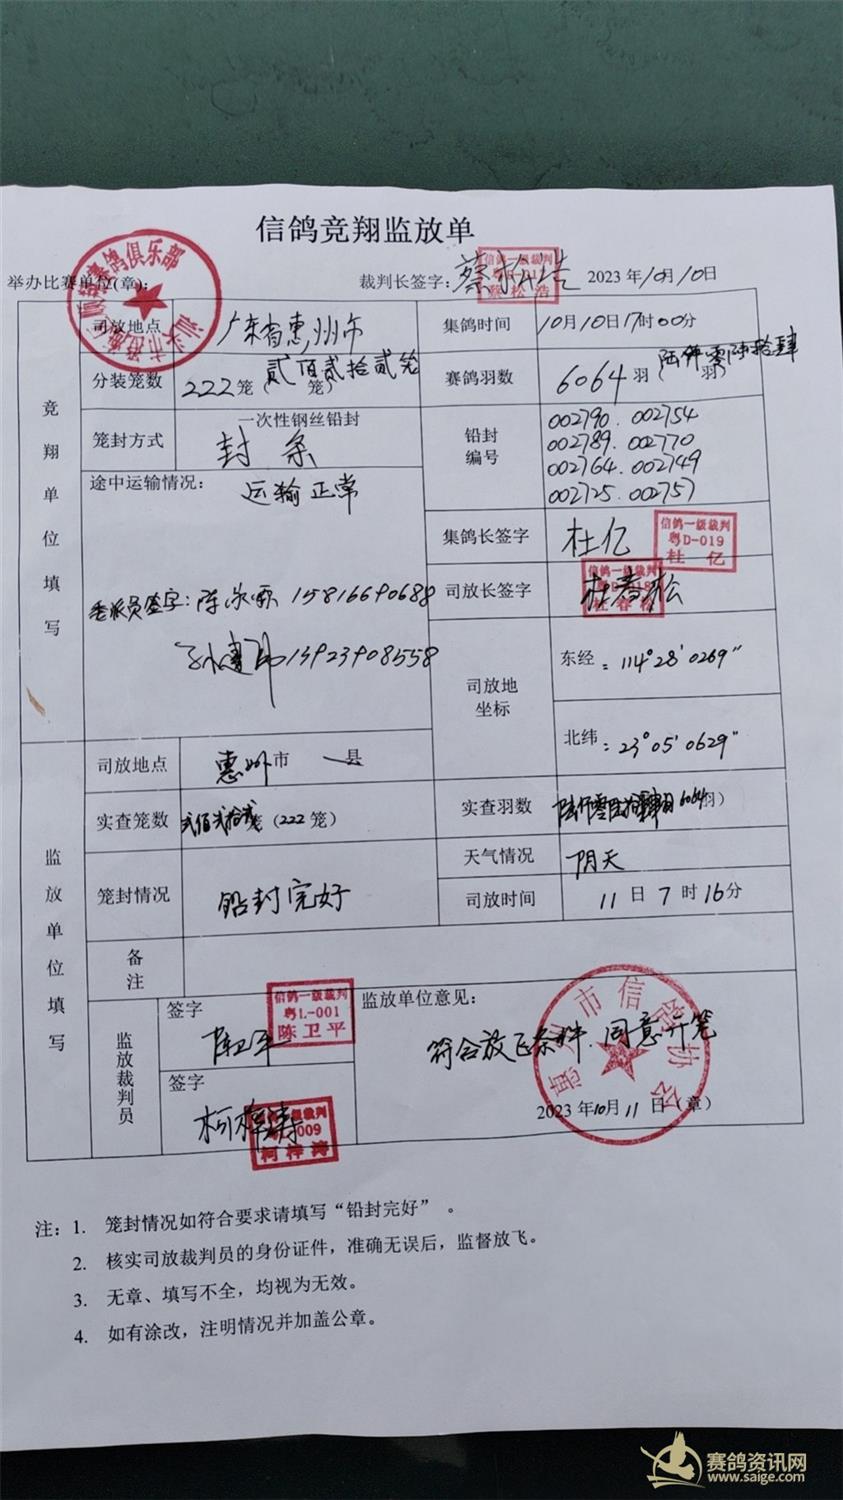 信鸽竞翔监放单
举办比赛单位(章):
裁判长签字: 蔡松浩 2023年10月10日
信鸽一级裁判
蔡松浩
赛鸽俱乐部
竞翔单位填写
司放地点 广东省惠州市 集鸽时间 10月10日17时00分
分装笼数 222笼(贰佰贰拾贰笼) 赛鸽羽数 6064羽(陆仟零陆拾肆羽)
笼封方式 一次性钢丝铅封
封条
铅封编号
002790. 002754
002789. 002770
002764. 002749
002725. 002757
途中运输情况:
运输正常
集鸽长签字 杜亿
信鸽一级裁判
粤D-019
杜亿
司放长签字 杜春松
信鸽一级裁判
杜春松
委派员签字: 陈 15816690688
13923908558
司放地坐标
东经: 114°28'0269"
北纬: 23°05'0629"
监放单位填写
司放地点 惠州市 县
实查笼数 贰佰贰拾贰笼(222笼) 实查羽数 陆仟零陆拾肆羽(6064羽)
天气情况 阴天
笼封情况 铅封完好 司放时间 11日7时16分
备注
监放裁判员
签字 陈卫平
信鸽一级裁判
粤L-001
陈卫平
签字 柯梓涛
信鸽一级裁判
009
柯梓涛
监放单位意见:
符合放飞条件.同意开笼
惠州市信鸽协会
2023年10月11日(章)
注: 1. 笼封情况如符合要求请填写“铅封完好”。
2. 核实司放裁判员的身份证件，准确无误后，监督放飞。
3. 无章、填写不全，均视为无效。
4. 如有涂改，注明情况并加盖公章。
赛鸽资讯网
www.saige.com